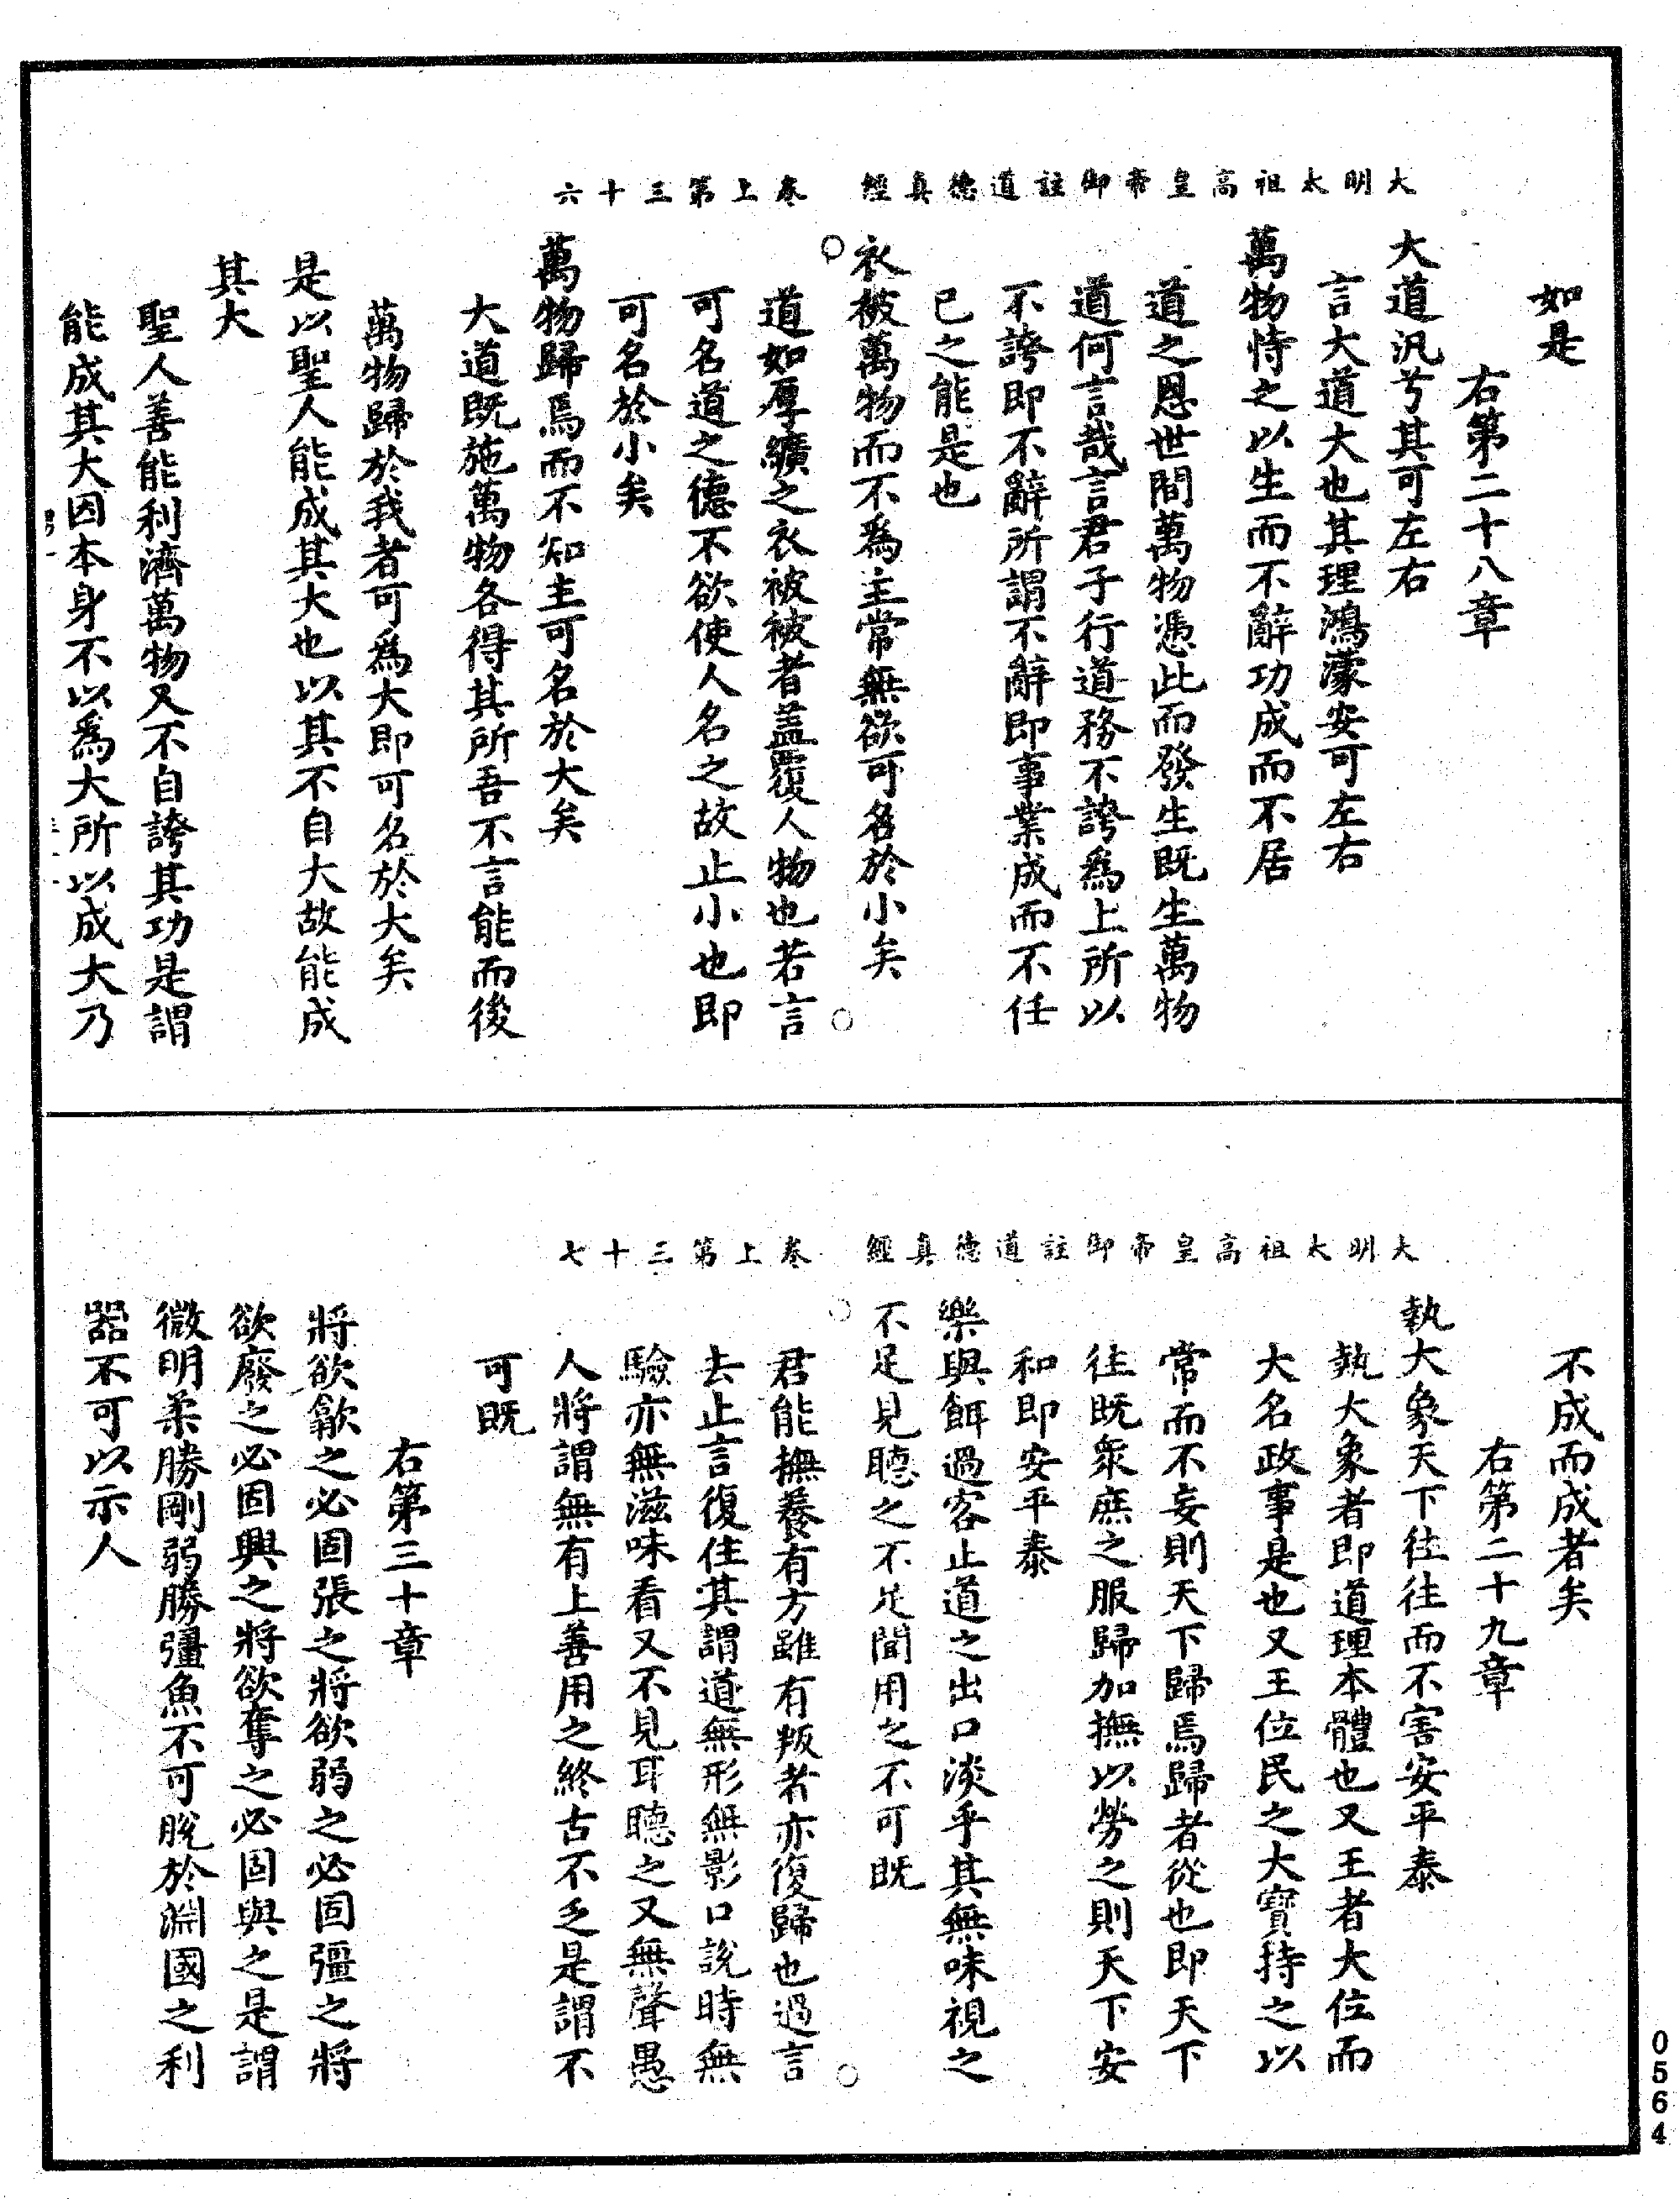 大明太祖高皇帝御註道德真經　卷上第三十六
如是
右第二十八章
大道汎兮其可左右
言大道大也其理鴻濛安可左右
萬物恃之以生而不辭功成而不居
道之恩世間萬物憑此而發生既生萬物
道何言哉言君子行道務不誇爲上所以
不誇即不辭所謂不辭即事業成而不任
已之能是也
衣被萬物而不爲主常無欲可名於小矣
道如厚纊之衣被被者蓋覆人物也若言
可名道之德不欲使人名之故止小也即
可名於小矣
萬物歸焉而不知主可名於大矣
大道既施萬物各得其所吾不言能而後
萬物歸於我者可爲大即可名於大矣
是以聖人能成其大也以其不自大故能成
其大
聖人善能利濟萬物又不自誇其功是謂
能成其大因本身不以爲大所以成大乃
大明太祖高皇帝御註道德真經　卷上第三十七
不成而成者矣
右第二十九章
執大象天下往往而不害安平泰
執大象者即道理本體也又王者大位而
大名政事是也又王位民之大寶持之以
常而不妄則天下歸焉歸者從也即天下
往既衆庶之服歸加撫以勞之則天下安
和即安平泰
樂與餌過客止道之出口淡乎其無味視之
不足見聽之不足聞用之不可既
君能撫養有方雖有叛者亦復歸也過言
去止言復住其謂道無形無影口說時無
驗亦無滋味看又不見耳聽之又無聲愚
人將謂無有上善用之終古不乏是謂不
可既
右第三十章
將欲歙之必固張之將欲弱之必固彊之將
欲廢之必固興之將欲奪之必固與之是謂
微明柔勝剛弱勝彊魚不可脫於淵國之利
器不可以示人
0564